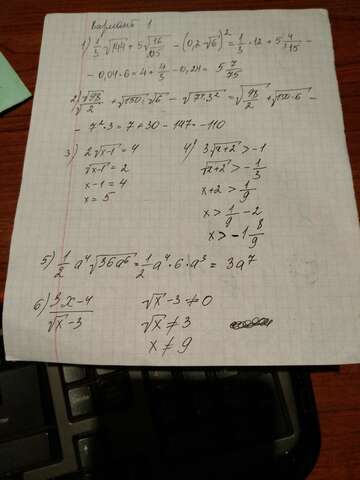 Вариант 1
1) 1/3 √144 + 5√16/225 − (0,2√6)² = 1/3 · 12 + 5 4/15 −
− 0,04·6 = 4 + 4/3 − 0,24 = 5 7/75
2) √98/√2 + √150·√6 − √7⁴·3² = √98/2 + √150·6 −
− 7²·3 = 7 + 30 − 147 = −110
3) 2√x−1 = 4
√x−1 = 2
x−1 = 4
x = 5
4) 3√x+2 > −1
√x+2 > −1/3
x+2 > 1/9
x > 1/9 − 2
x > −1 8/9
5) 1/2 a⁴√36a⁶ = 1/2 a⁴ · 6 · a³ = 3a⁷
6) 3x−4/√x −3
√x −3 ≠ 0
√x ≠ 3
x ≠ 9